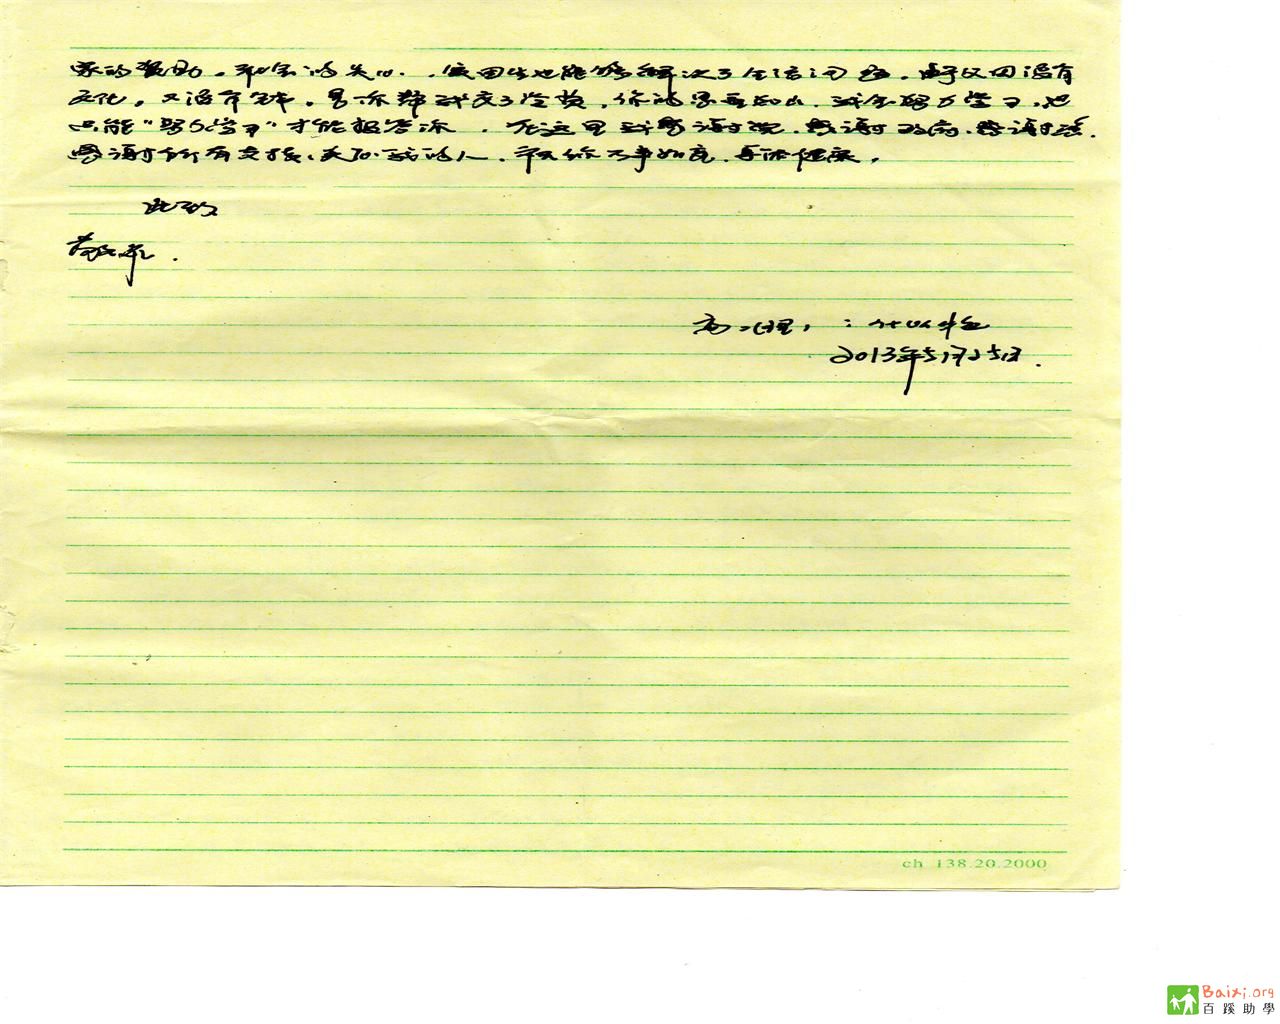 家的资助。和你的关心，使困生也能够解决了生活问题，由于父母没有
文化，又没有钱，是你帮我交了学费，你的恩重如山，我会努力学习，也
只能"努力学习"才能报答你，在这里我要谢谢党，感谢政府，感谢
感谢所有支援、关心我的人，祝你万事如意，身体健康。
此致
敬礼.
高
2013年5月25日.
ch 138.20.2000
Baixi.org
百蹊助學